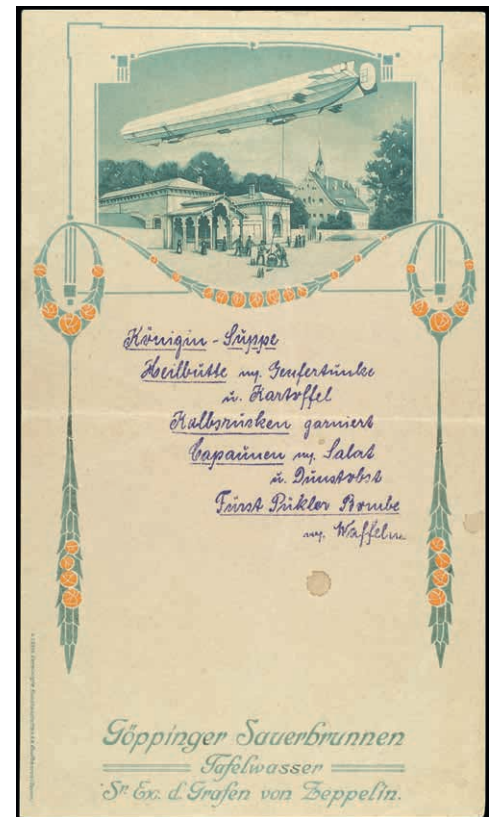 Königin - Suppe
Heilbutte m. Genfertunke
u. Kartoffel
Kalbsrücken garniert
Capaunen m. Salat
u. Dunstobst
Fürst Pükler Bombe
m. Waffeln
Göppinger Sauerbrunnen
Tafelwasser
Sr. Ex. d. Grafen von Zeppelin.